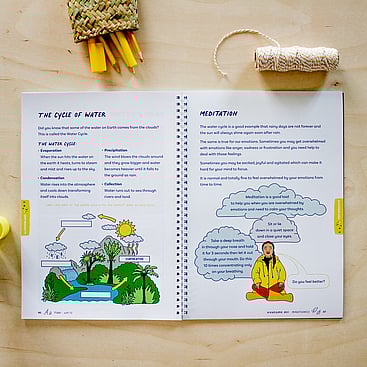 THE CYCLE OF WATER
Did you know that some of the water on Earth comes from the clouds?
This is called the Water Cycle.
THE WATER CYCLE
• Evaporation
When the sun hits the water on
the earth it heats, turns to steam
and mist and rises up to the sky
• Condensation
Water rises into the atmosphere
and cools down transforming
itself into clouds.
• Precipitation
The wind blows the clouds around
and they grow bigger and water
becomes heavier until it falls to
the ground as rain.
• Collection
Water runs out to sea through
rivers and land.
MEDITATION
The water cycle is a good example that rainy days are not forever and
the sun will always shine again soon after rain.
The same is true for our emotions. Sometimes you may get overwhelmed
with emotions like anger, sadness or frustration and you need help to
deal with those feelings.
Sometimes you may be excited, joyful and agitated which can make it
hard for your mind to focus.
It is normal and totally fine to feel overwhelmed by your emotions from
time to time.
Meditation is a good tool
to help you when you are overwhelmed by
emotions and need to calm your thoughts.
Sit or lie
down in a quiet space
and close your eyes.
Take a deep breath
in through your nose and hold
it for 3 seconds then let it out
through your mouth. Do this
10 times concentrating only
on your breathing
Do you feel better?